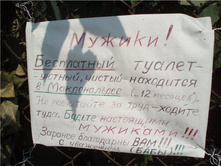 Мужики!
Бесплатный туалет-
уютный, чистый находится
в Макдональдсе (.12 месяцев).
Не сочтайте за труд-ходите
туда. Будьте настоящими
МУЖИКАМИ!!!
Заранее благодарны ВАМ!!!
С уважением (БАБЫ)!!!